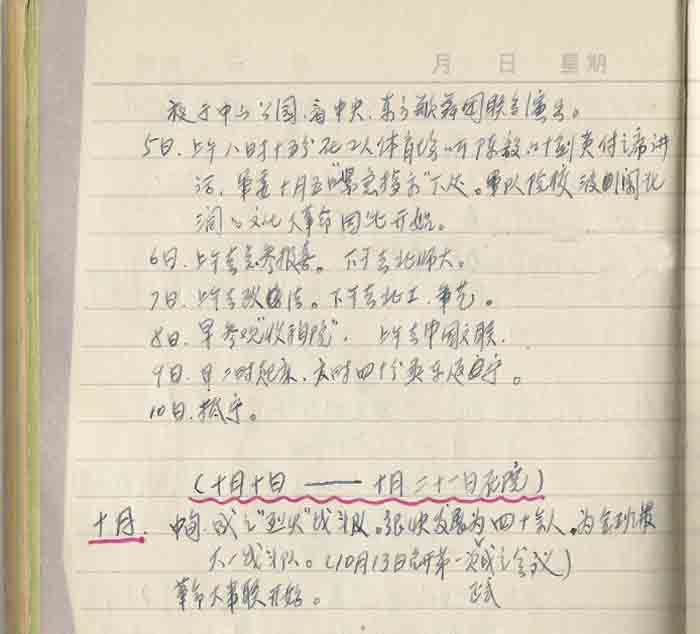 月 日 星期
于中山公园,看中央、东方歌舞团联合演出。
5日.上午八时十五分在工人体育场听陈毅、叶剑英付主席讲
话,军委十月五"紧急指示"下达。军队院校
文化大革命因此开始。
6日.上午去总参报告。下午去北师大。
7日.上午去政法。下午去北工、
8日.早参观"收租院",上午去中国文联.
9日.早二时起床,六时四十分乘车返宁。
10日.抵宁。
(十月十日 —— 十月二十一日在院)
十月. 中旬.成立"烈火"战斗队,很快发展为四十余人,为全
大一战斗队。(10月13日召开第一次成立会议)
正式
革命大串联开始。